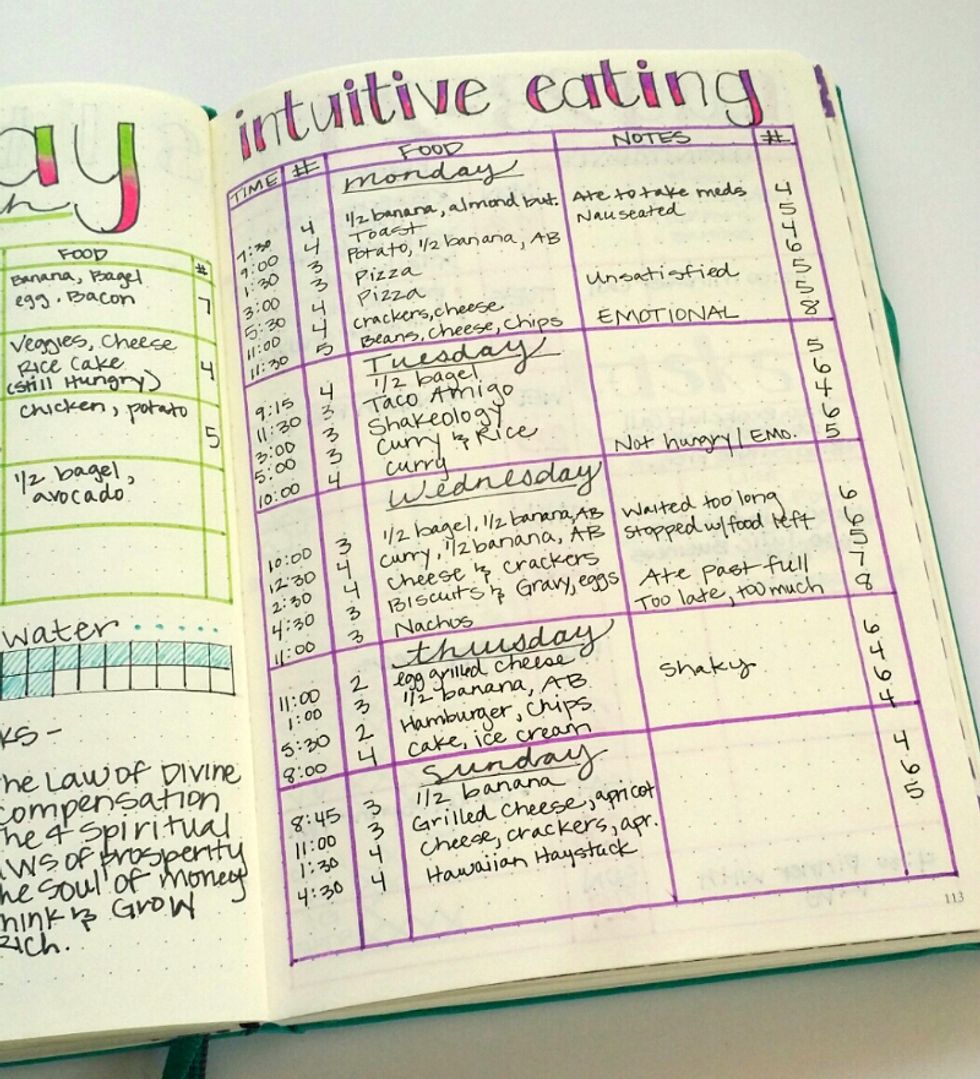 ay
FOOD #
Banana, Bagel
egg, Bacon 7
Veggies, Cheese
Rice Cake 4
(still Hungry)
chicken, potato
5
1/2 bagel,
avocado
water
ks -
he Law of Divine
ompensation
he 4 Spiritual
ws of prosperity
he Soul of Money
hink & Grow
Rich.
intuitive eating
TIME # FOOD NOTES #
Monday
7:30 4 1/2 banana, almond but. Ate to take meds 4
9:00 4 Toast Nauseated 5
1:30 3 Potato, 1/2 banana, AB 4
3:00 3 Pizza 6
5:30 4 Pizza Unsatisfied 5
11:00 4 crackers, cheese 5
11:30 5 Beans, cheese, chips EMOTIONAL 8
Tuesday
9:15 4 1/2 bagel 5
11:30 3 Taco Amigo 6
3:00 3 Shakeology 4
5:00 3 Curry & Rice 6
10:00 4 curry Not hungry/Emo. 5
Wednesday
10:00 3 1/2 bagel, 1/2 banana, AB Waited too long 6
12:30 4 curry, 1/2 banana, AB Stopped w/food left 6
2:30 4 cheese & crackers 5
4:30 3 Biscuits & Gravy, eggs Ate past full 7
11:00 3 Nachos Too late, too much 8
thursday
11:00 2 egg grilled cheese 6
1:00 3 1/2 banana, AB Shaky 4
5:30 2 Hamburger, chips 6
8:00 4 cake, ice cream 4
Sunday
8:45 3 1/2 banana 4
11:00 3 Grilled cheese, apricot 6
1:30 4 Cheese, crackers, apr. 5
4:30 4 Hawaiian Haystack
113